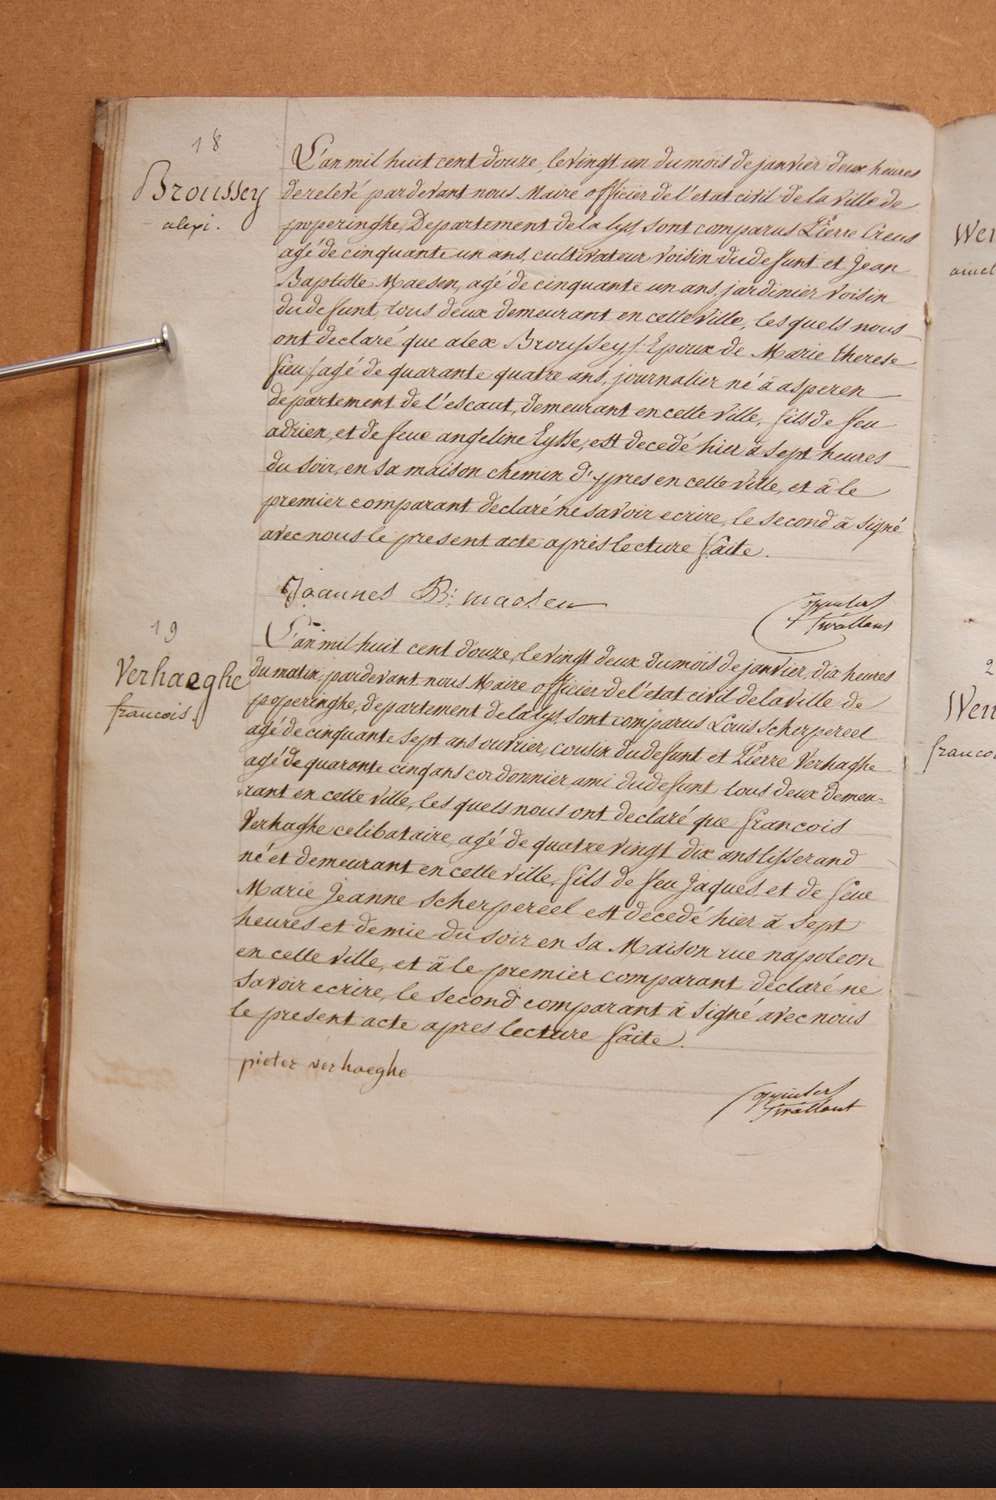 18
Broussey
alexi.
L'an mil huit cent douze, le vingt un du mois de janvier deux heures
de relevé pardevant nous Maire officier de l'etat civil de la ville de
poperinghe, Departement de la lys, sont comparus Pierre
agé de cinquante un ans, cultivateur voisin du defunt et Jean
Baptiste Maesen, agé de cinquante un ans, jardinier voisin
du defunt, tous deux demeurant en cette ville, les quels nous
ont declaré que alex Broussey, / Epoux de Marie therese
fieu / agé de quarante quatre ans, journalier né à asperen
departement de l'escaut, demeurant en cette ville, fils de feu
adrien, et de feue angeline est decedé hier à sept heures
du soir, en sa maison chemin d'ypres en cette ville, et à le
premier comparant declaré ne savoir ecrire, le second à signé
avec nous le present acte après lecture faite.
Joannes B: maesen
19
Verhaeghe
francois.
L'an mil huit cent douze, le vingt deux du mois de janvier, dix heures
du matin, pardevant nous Maire officier de l'etat civil de la ville de
poperinghe, departement de la lys sont comparus Louis Scherpereel
agé de cinquante sept ans ouvrier, cousin du defunt et Pierre Verhaghe
agé de quarante cinq ans cordonnier, ami du defunt tous deux demeu-
rant en cette ville, les quels nous ont declaré que francois
Verhaghe celibataire, agé de quatre vingt dix ans tisserand
né et demeurant en cette ville, fils de feu Jaques et de feue
Marie Jeanne Scherpereel est decedé hier à sept
heures et demie du soir en sa Maison rue napoleon
en cette ville, et à le premier comparant déclaré ne
savoir ecrire, le second comparant à signé avec nous
le present acte apres lecture faite.
pieter verhaeghe
Wer
2
Wen
franco